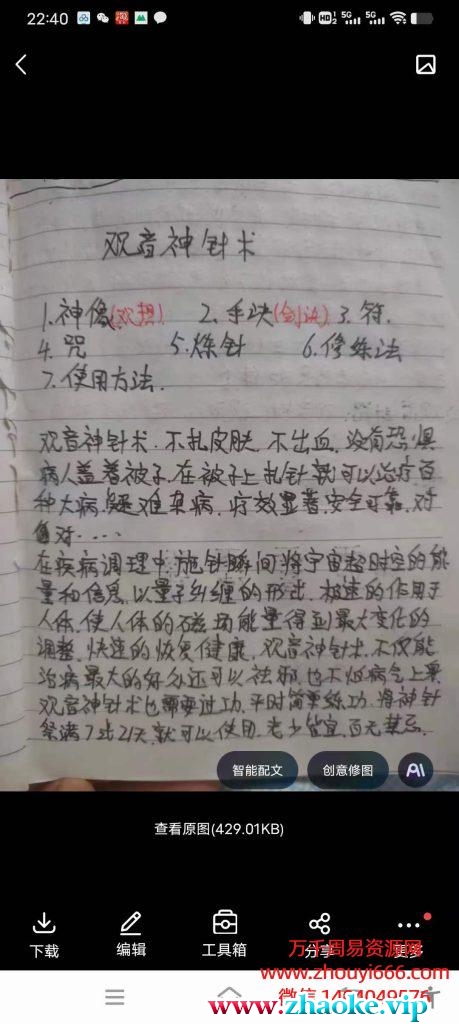 22:40
观音神针术
1.神像(观想) 2.手诀(剑诀) 3.符.
4.咒 5.炼针 6.修练法
7.使用方法.
观音神针术.不扎皮肤.不出血.没有恐惧
病人盖着被子.在被子上扎针就可以治疗百
种大病.疑难杂病.疗效显著.安全可靠.对
对....
在疾病调理中.施针瞬间将宇宙超时空的能
量和信息.以量子纠缠的形式.极速的作用于
人体.使人体的磁场能量得到最大变化的
调整.快速的恢复健康.观音神针术.不仅能
治病最大的好处还可以祛邪.也不怕病气上累
观音神针术也需要过功.平时简单练功.将神针
祭满7至21天.就可以使用.老少皆宜.百无禁忌.
智能配文 创意修图 AI
查看原图(429.01KB)
下载 编辑 工具箱 分享 更多
万千周易资源网
www.zhouyi666.com
www.zhaoke.vip